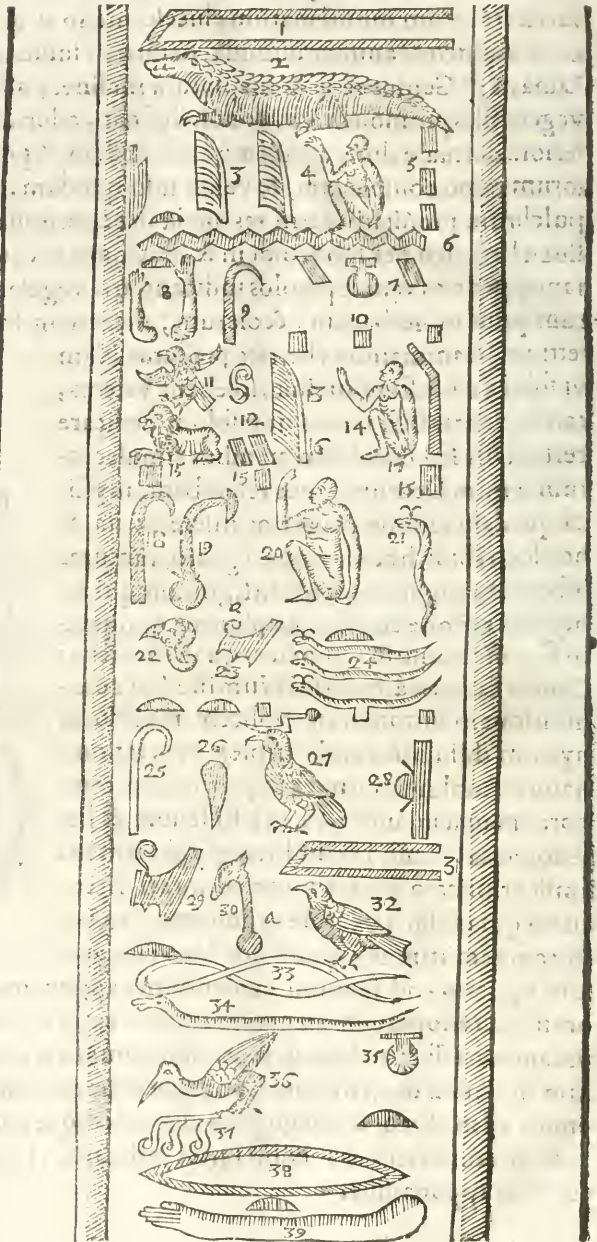 1
2
3 4 5
6
8 9 7
10
11 13
12 14
15 16 17
15 15
18 19 20 21
a
22 23 24
25 26 27 28
29 30 a 3 32
33
34
35
36
31
38
39